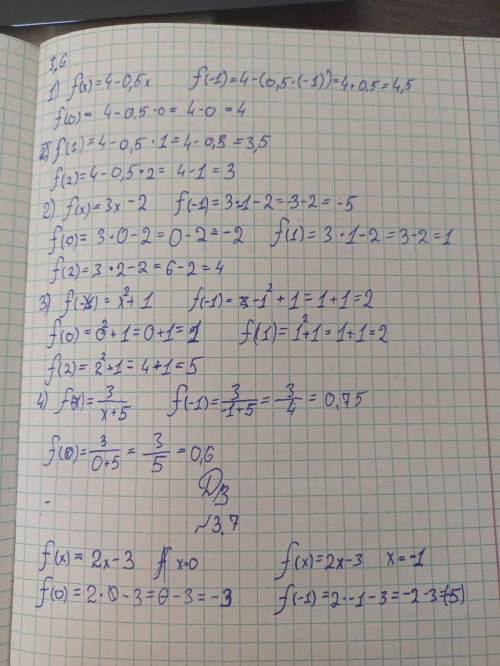 3,6
1) f(x)=4-0,5x f(-1)=4-(0,5·(-1))=4+0.5=4,5
f(0)= 4-0,5·0= 4-0=4
f(1)=4-0,5·1=4-0,5=3,5
f(2)=4-0,5·2= 4-1=3
2) f(x)=3x-2 f(-1)=3·1-2=-3-2=-5
f(0)= 3·0-2=0-2=-2 f(1)=3·1-2=3-2=1
f(2)=3·2-2=6-2=4
3) f(x)=x²+1 f(-1)=-1²+1=1+1=2
f(0)=0²+1=0+1=1 f(1)=1²+1=1+1=2
f(2)=2²+1=4+1=5
4) f(x)=3/x+5 f(-1)=3/-1+5=3/4=0,75
f(0)=3/0+5=3/5=0,6
ДЗ
~3.7
f(x)=2x-3 x=0 f(x)=2x-3 x=-1
f(0)=2·0-3=0-3=-3 f(-1)=2·-1-3=-2-3=(-5)